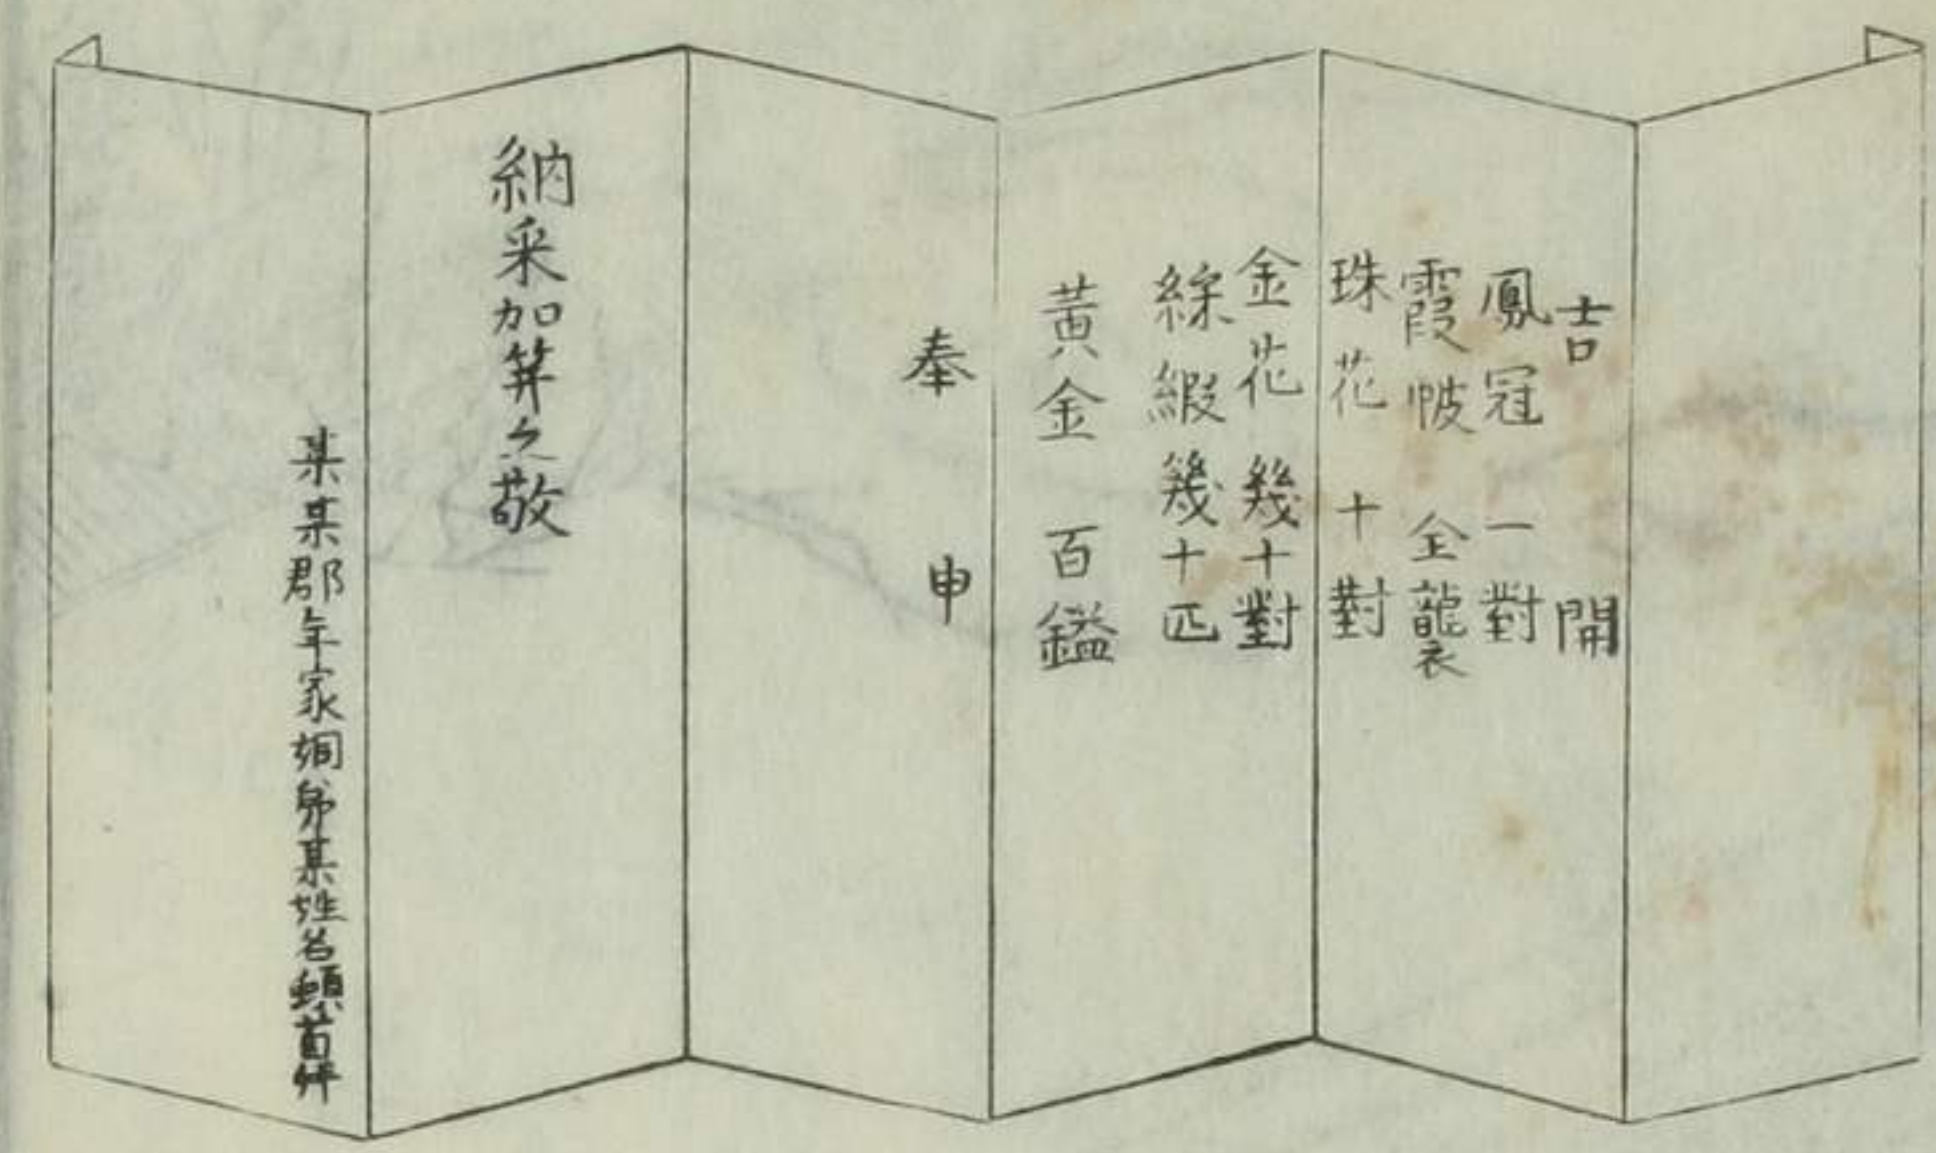 吉開
鳳冠一對
霞帔全襲
珠花十對
金花幾十對
綵緞幾十匹
黃金百鎰
奉申
納采加筓之敬
某某郡年家姻弟某姓名頓首拜